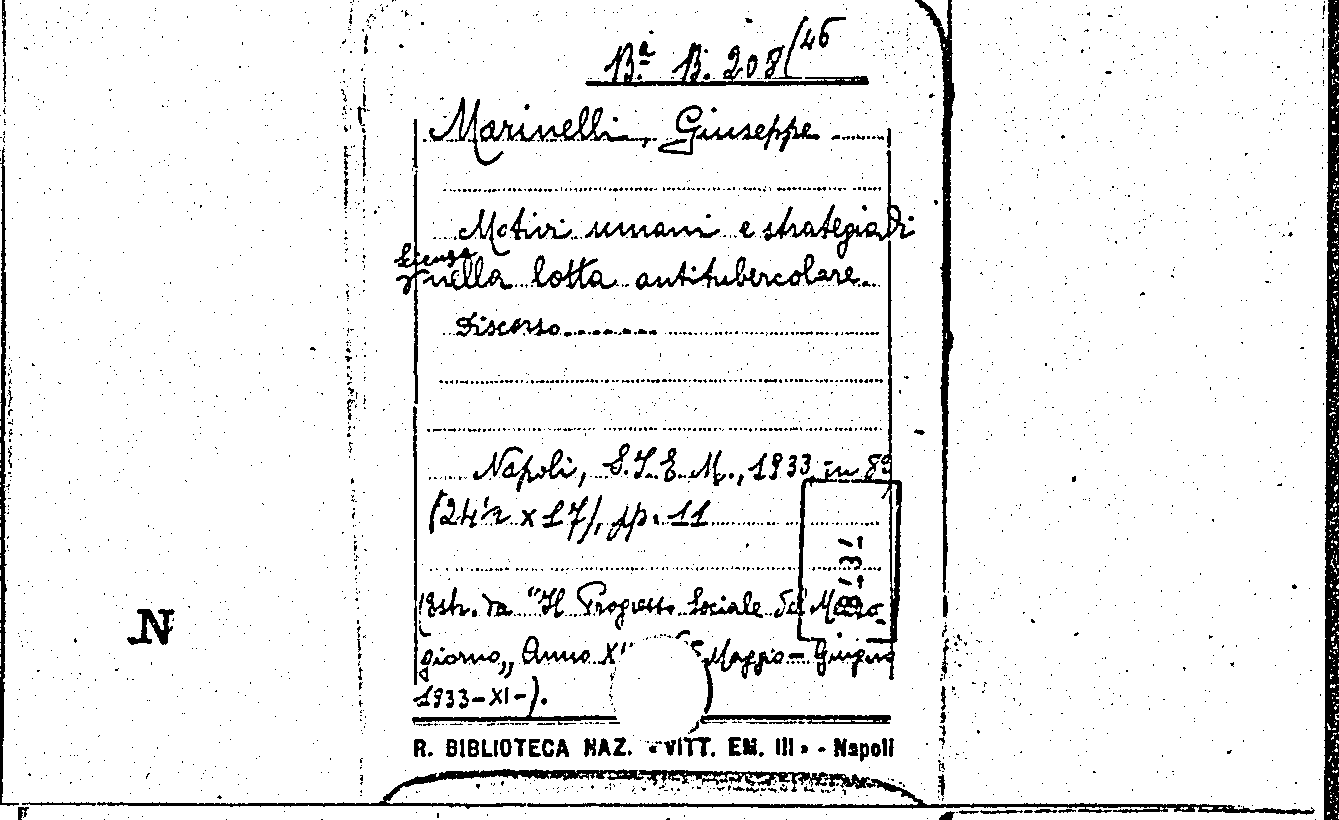 Bª B. 208/46
Marinelli, Giuseppe
Motivi umani e strategia di
scienza
nella lotta antitubercolare.
Discorso.......
Napoli, S.I.E.M., 1933, in 8º
(24½ x 17), pp. 11
(Estr. da "Il Progresso Sociale del Mezzo
giorno,, Anno Maggio - Giugno
1933-XI-).
N
R. BIBLIOTECA NAZ. «VITT. EM. III» - Napoli